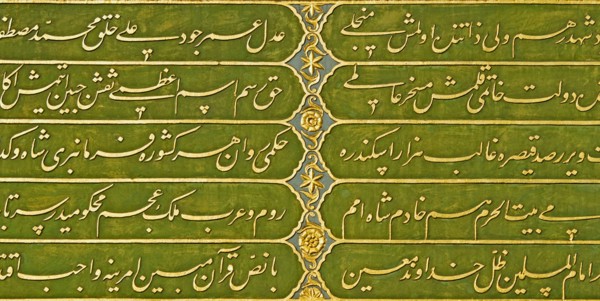 شهدر هم ولی ذاتندن اولمش منجلی عدل عمر جود علی خلق محمد مصطفی
دولت خاتمی قلمش مسخر عالمی حق رسم اسم اعظمی نقش جبین ایتمش اکا
ویرر صد قیصره غالب هزار اسکندره حکمی روان هر کشوره فرمانبری شاه و کدا
بیت الحرم هم خادم شاه امم روم و عرب ملک عجم محکومیدر
امام المسلمین ظل خداوند معین با نص قرآن مبین امرینه واجب